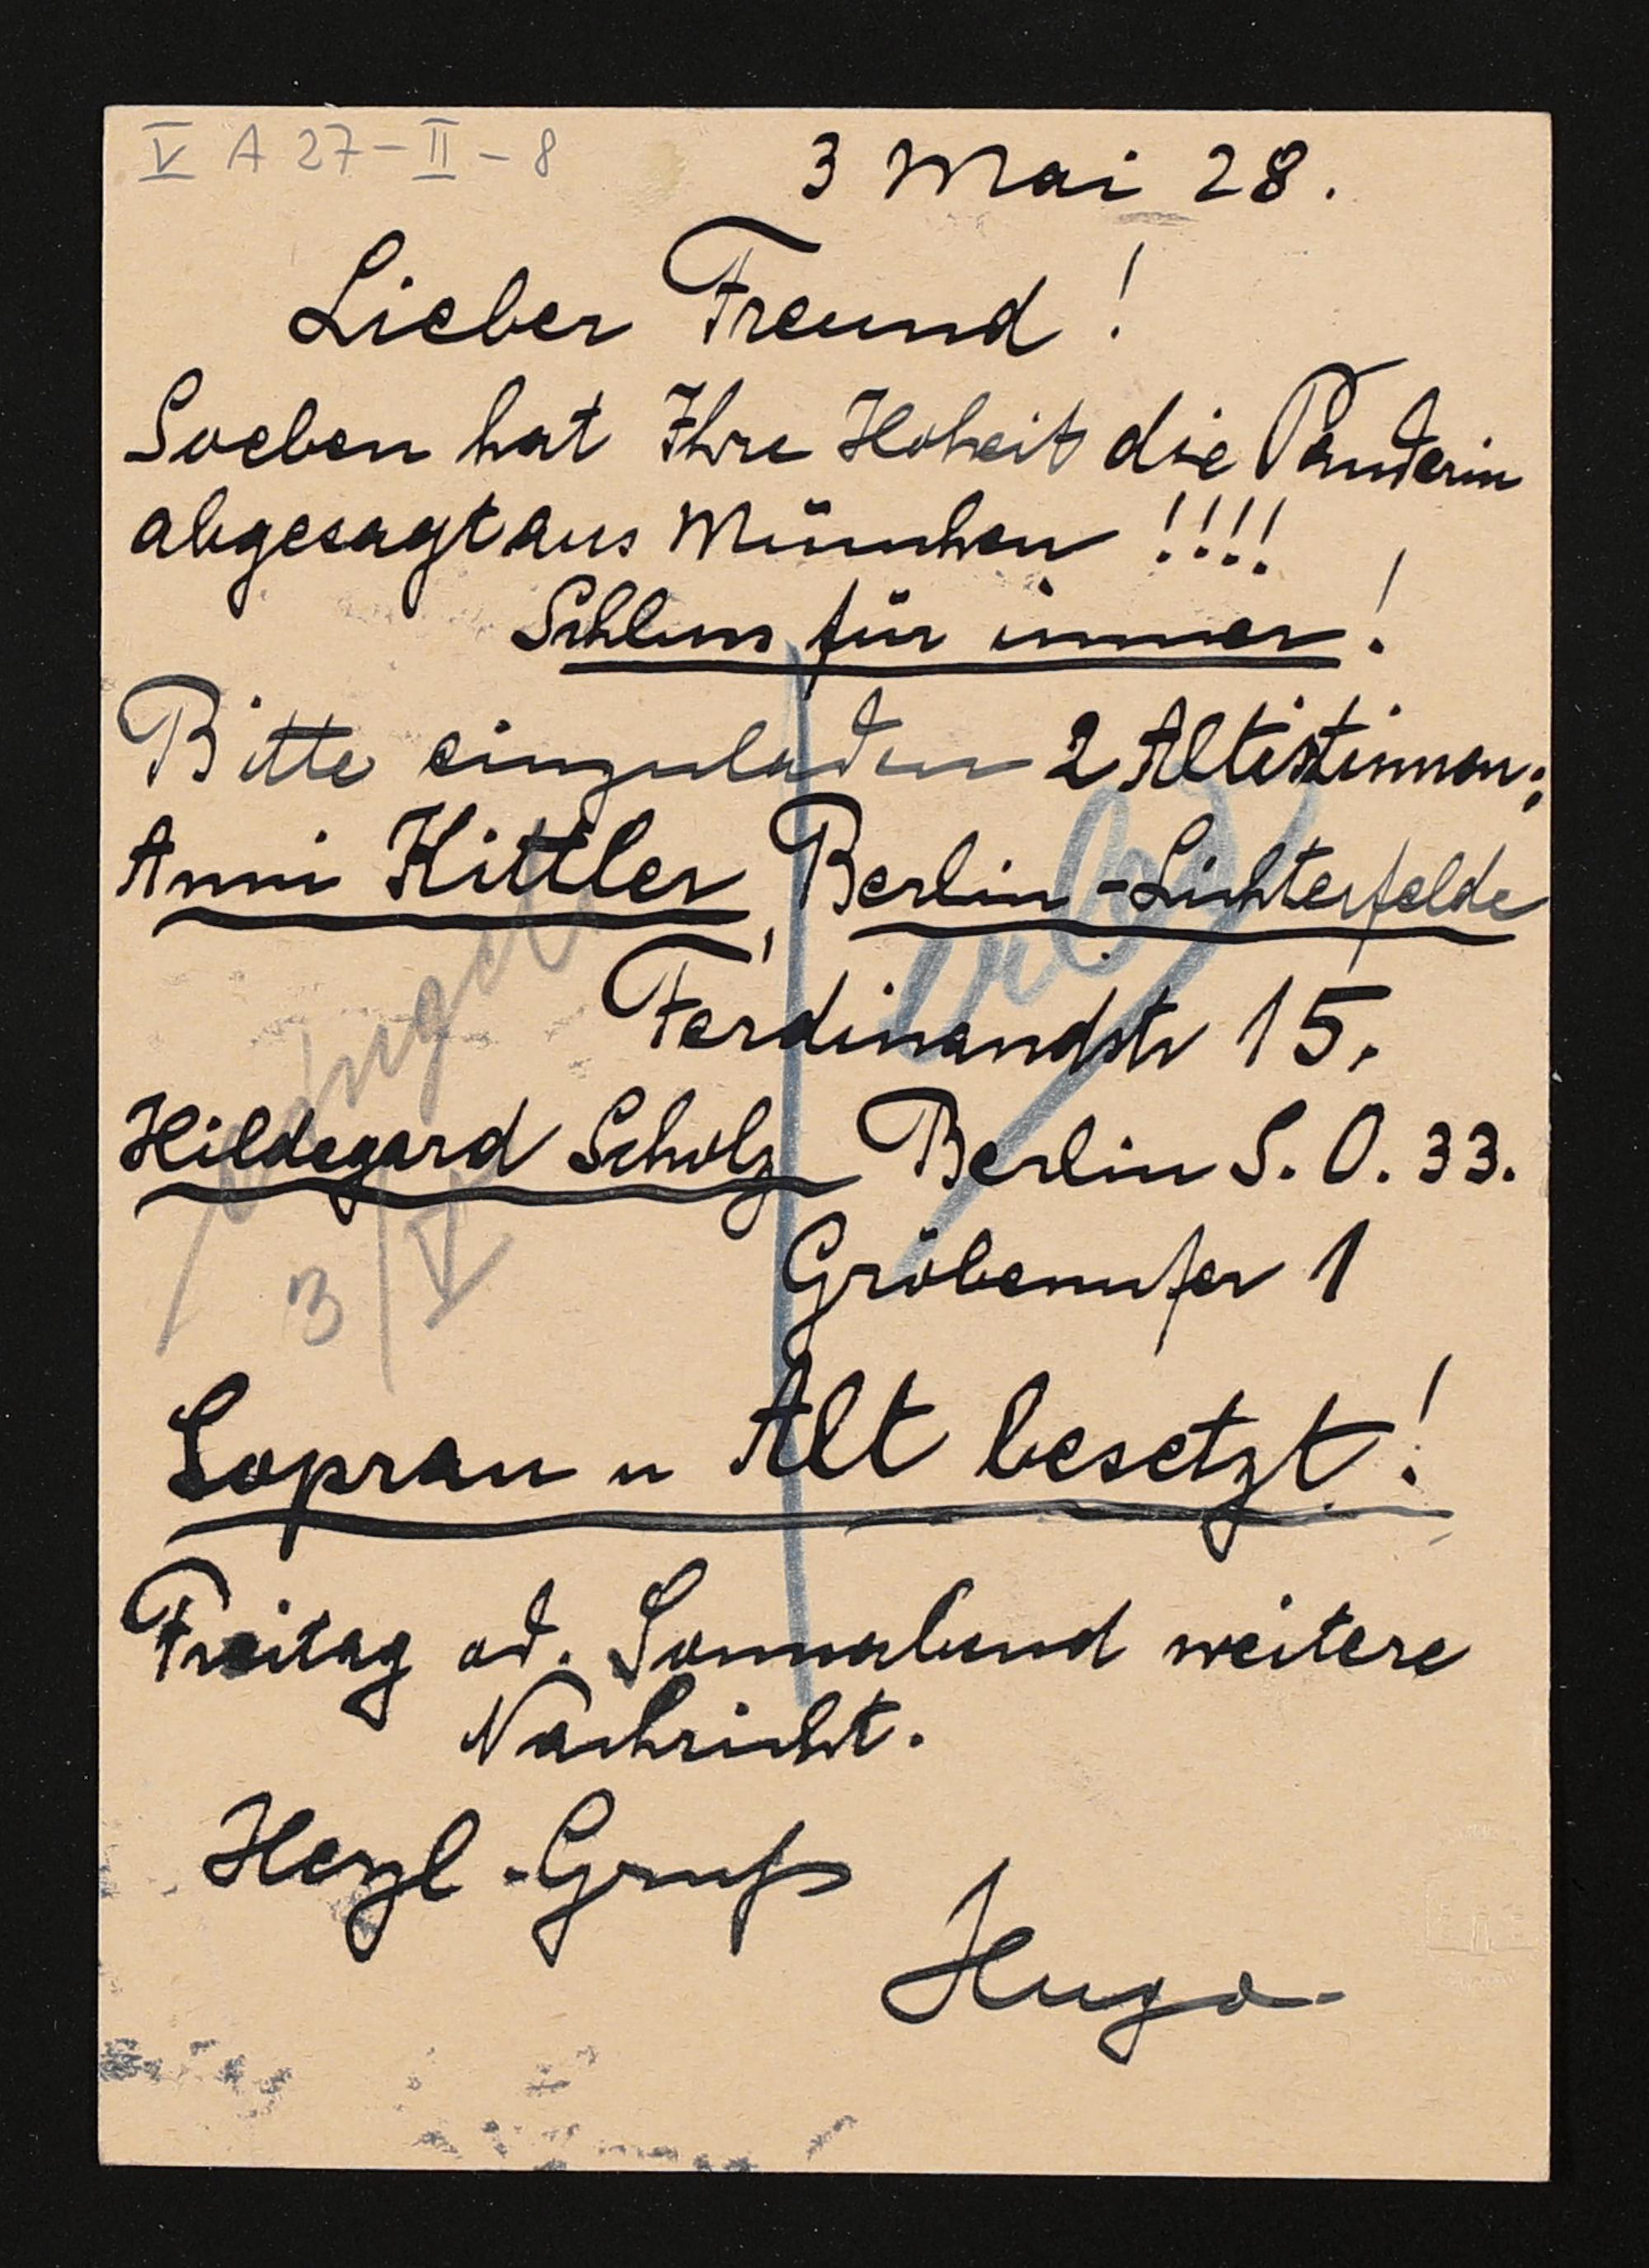 V A 27-II-8
3 Mai 28.
Lieber Freund!
Soeben hat Ihre Hoheit die Panderin
abgesagt aus München !!!!
Schluss für immer!
Bitte einzuladen 2 Altistinnen:
Anni Kittler, Berlin-Lichterfelde
Ferdinandstr 15.
Hildegard Scholz Berlin S.O. 33.
3/V
Gröbenufer 1
Sopran u Alt besetzt!
Freitag od. Sonnabend weitere
Nachricht.
Herzl-Gruß
Hugo-